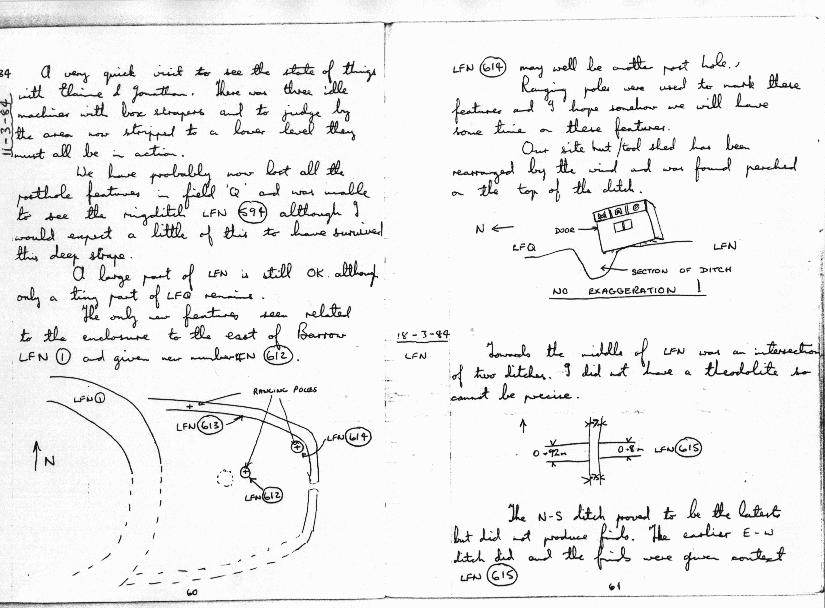 84
11-3-84
A very quick visit to see the state of things
with Elaine & Jonathan. There was three idle
machines with box strapers and to judge by
the area now stripped to a lower level they
must all be in action.
We have probably now lost all the
posthole features in field 'Q' and was unable
to see the ringditch LFN 594 although I
would expect a little of this to have survived
this deep strape.
A large part of LFN is still OK. although
only a tiny part of LFQ remains.
The only new features seen related
to the enclosure to the east of Barrow
LFN 1 and given new number LFN 612.
RANGING POLES
LFN 1
LFN 613
LFN 614
N
LFN 612
60
LFN 614 may well be another post hole.
Ranging poles were used to mark these
features and I hope somehow we will have
some time on these features.
Our site hut/tool shed has been
rearranged by the wind and was found perched
on the top of the ditch.
N
DOOR
LFQ
LFN
SECTION OF DITCH
NO EXAGGERATION !
18-3-84
LFN
Towards the middle of LFN was an intersection
of two ditches. I did not have a theodolite so
cannot be precise.
0.92m
0.8m
LFN 615
The N-S ditch proved to be the latest
but did not produce finds. The earlier E-W
ditch did and the finds were given context
LFN 615
61